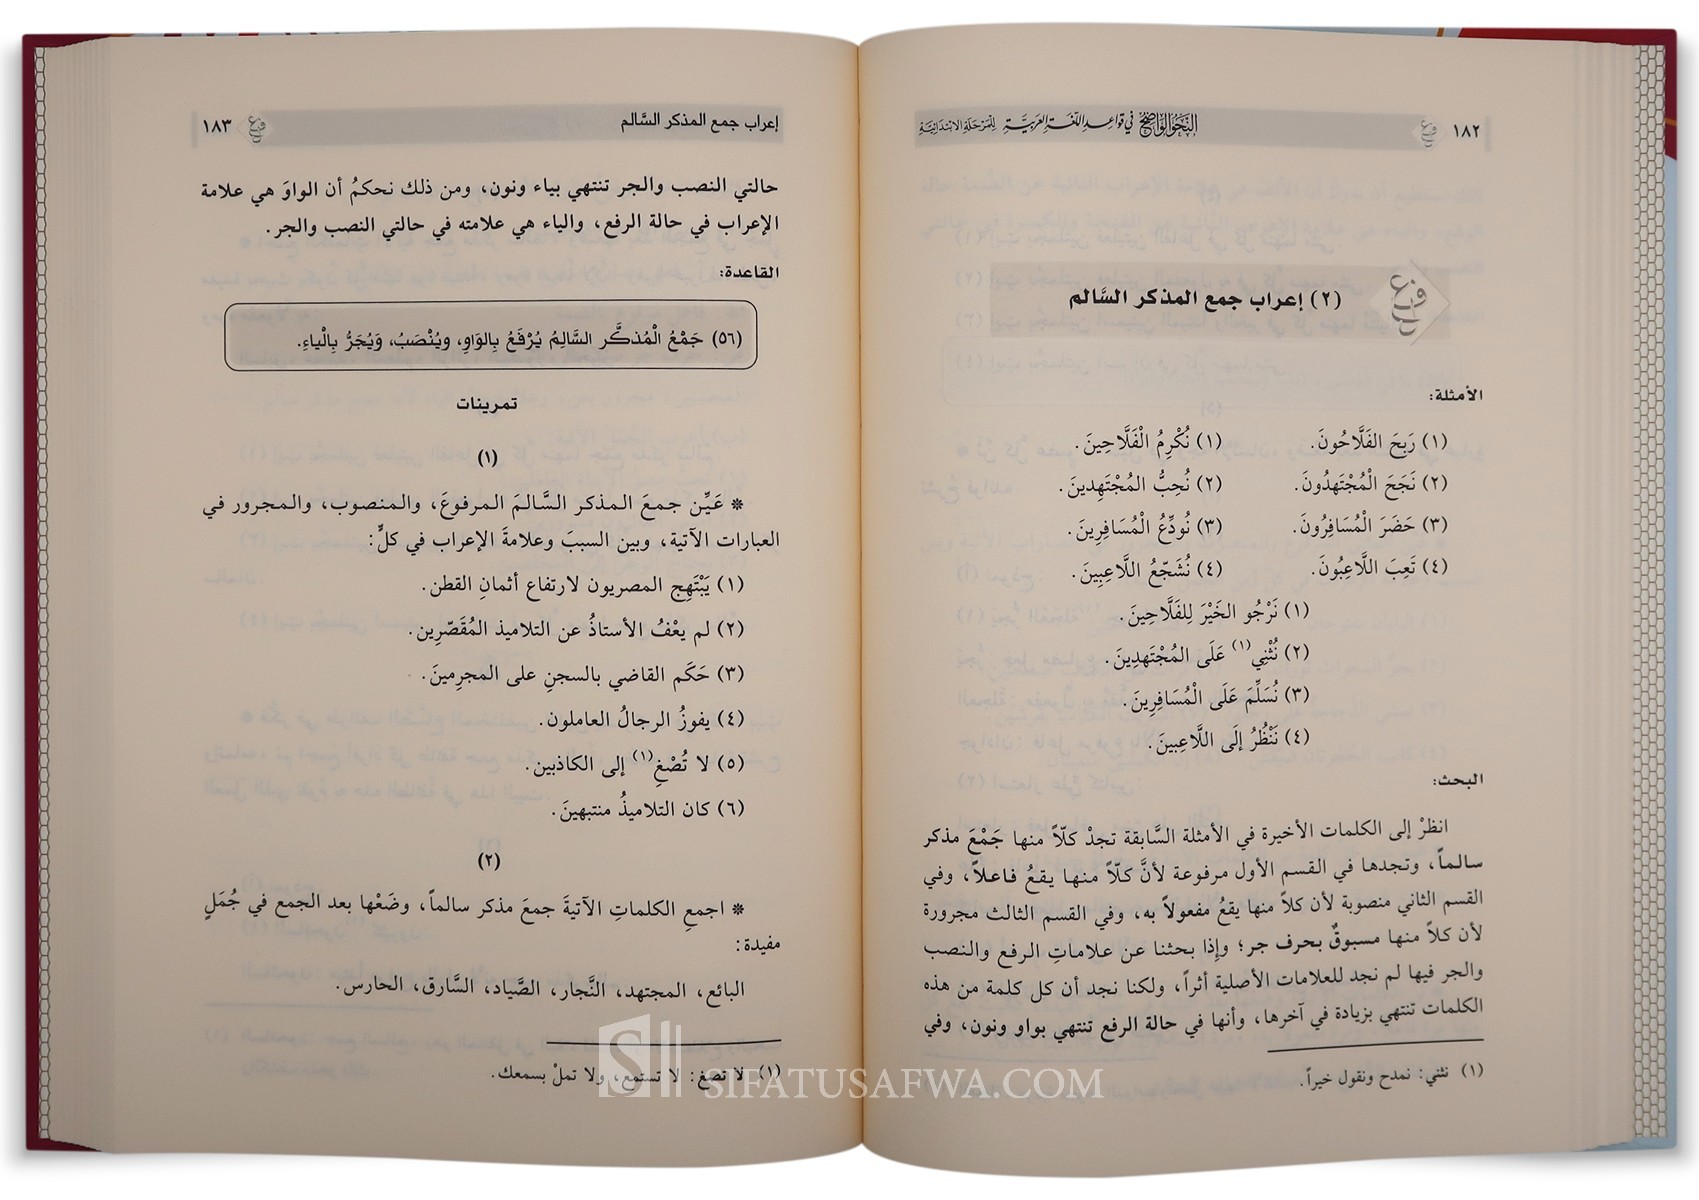 ١٨٢ النحو الواضح في قواعد اللغة العربية للمرحلة الابتدائية
(٢) إعراب جمع المذكر السَّالم
الأمثلة:
(١) رَبِحَ الفَلَّاحُونَ. (١) نُكْرِمُ الْفَلَّاحِينَ.
(٢) نَجَحَ الْمُجْتَهِدُونَ. (٢) نُحِبُّ المُجْتَهِدِينَ.
(٣) حَضَرَ الْمُسَافِرُونَ. (٣) نُودِّعُ الْمُسَافِرِينَ.
(٤) تَعِبَ اللَّاعِبُونَ. (٤) نُشَجّعُ اللَّاعِبِينَ.
(١) نَرْجُو الخَيْرَ لِلفَلَّاحِينَ.
(٢) نُثْنِي(١) عَلَى المُجْتَهِدِينَ.
(٣) نُسَلِّمَ عَلَى الْمُسَافِرِينَ.
(٤) نَنْظُرُ إلَى اللَّاعِبينَ.
البحث:
انظرْ إلى الكلمات الأخيرة في الأمثلة السَّابقة تجدْ كلّاً منها جَمْعَ مذكر
سالماً، وتجدها في القسم الأول مرفوعة لأنَّ كلّاً منها يقعُ فاعلاً، وفي
القسم الثاني منصوبة لأن كلاً منها يقعُ مفعولاً به، وفي القسم الثالث مجرورة
لأن كلاً منها مسبوقٌ بحرف جر؛ وإذا بحثنا عن علاماتِ الرفع والنصب
والجر فيها لم نجد للعلامات الأصلية أثراً، ولكنا نجد أن كل كلمة من هذه
الكلمات تنتهي بزيادة في آخرها، وأنها في حالة الرفع تنتهي بواو ونون، وفي
(١) نثني: نمدح ونقول خيراً.
إعراب جمع المذكر السَّالم ١٨٣
حالتي النصب والجر تنتهي بياء ونون، ومن ذلك نحكمُ أن الواوَ هي علامة
الإعراب في حالة الرفع، والياء هي علامته في حالتي النصب والجر.
القاعدة:
(٥٦) جَمْعُ الْمُذكَّر السَّالِمُ يُرْفَعُ بِالوَاوِ، ويُنْصَبُ، وَيُجَرُّ بِالْياءِ.
تمرينات
(١)
* عَيِّن جمعَ المذكر السَّالمَ المرفوعَ، والمنصوب، والمجرور في
العبارات الآتية، وبين السببَ وعلامةَ الإعراب في كلٍّ:
(١) يَبْتَهِج المصريون لارتفاع أثمانِ القطن.
(٢) لم يعْفُ الأستاذُ عن التلاميذ المُقَصِّرِين.
(٣) حَكَم القاضي بالسجنِ على المجرِمينَ.
(٤) يفوزُ الرجالُ العاملون.
(٥) لا تُصْغِ(١) إلى الكاذبين.
(٦) كان التلاميذُ منتبهينَ.
(٢)
* اجمعِ الكلماتِ الآتيةَ جمعَ مذكر سالماً، وضَعْها بعد الجمع في جُمَلٍ
مفيدة:
البائع، المجتهد، النَّجار، الصَّياد، السَّارق، الحارس.
(١) لا تصْغ: لا تستمع، ولا تملْ بسمعك.
SIFATUSAFWA.COM